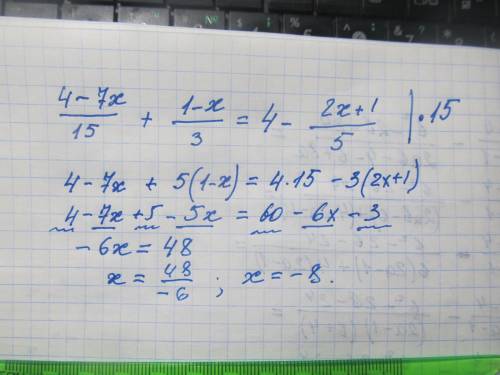 (4-7x)/15 + (1-x)/3 = 4 - (2x+1)/5 | · 15
4-7x + 5(1-x) = 4·15 - 3(2x+1)
4-7x+5-5x = 60-6x-3
-6x = 48
x = 48/-6 ; x = -8.